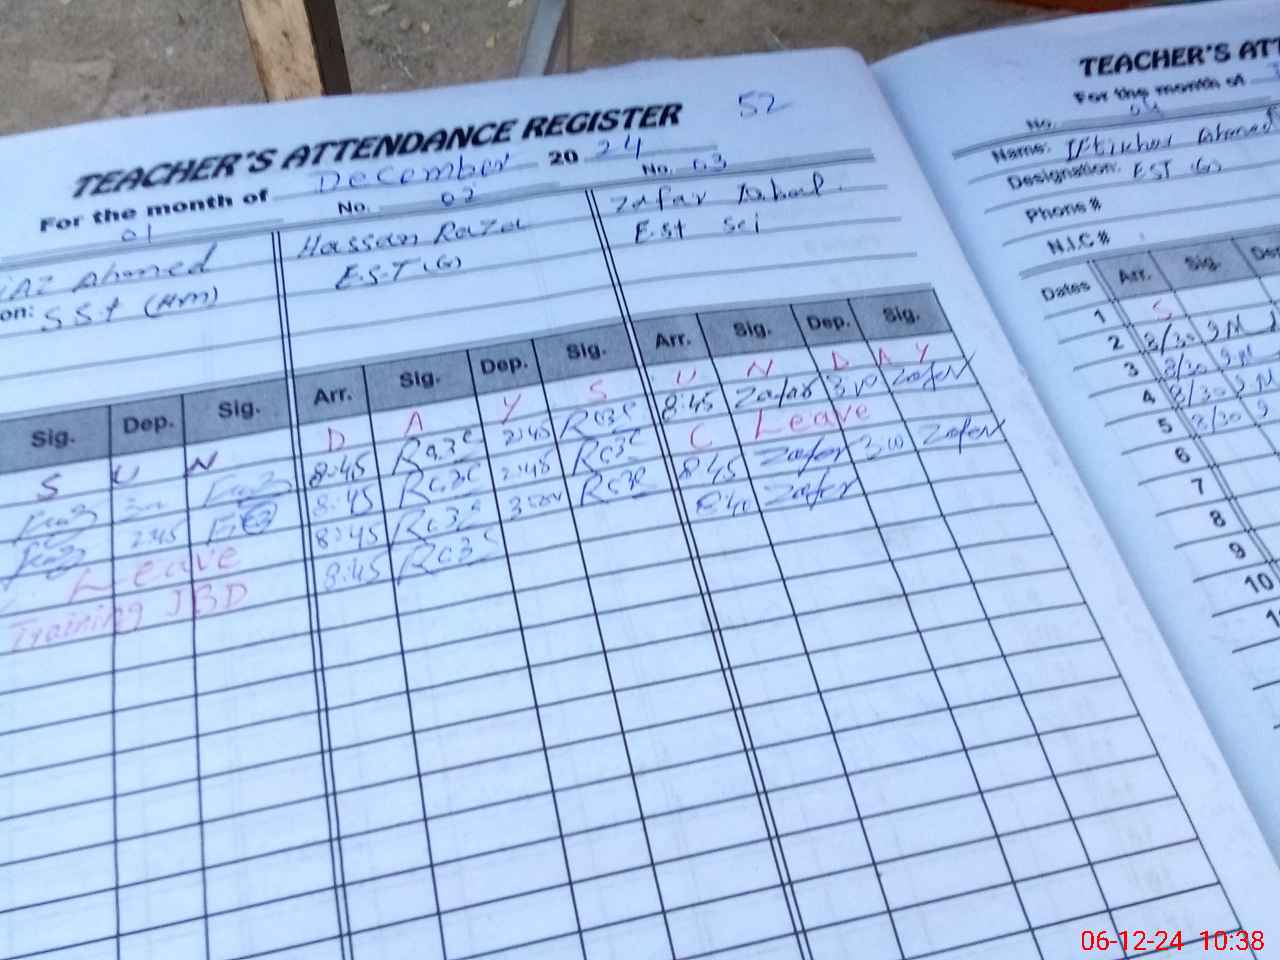 52
TEACHER'S ATTENDANCE REGISTER
For the month of December 20 24
01 No. 02 No. 03
IAZ Ahmed Hassan Raza Zafar Iqbal.
on: SST (HM) E.S.T (G) E.st Sci
Sig. Dep. Sig. Arr. Sig. Dep. Sig. Arr. Sig. Dep. Sig.
S U N D A Y S U N D A Y
8:45 2:45 8:45 Zafar 3:00 Zafar
8:45 2:45 C Leave
2:45 8:45 8:45 Zafar 3:00 Zafar
Leave 8:45 8:40 Zafar
Training JBD
TEACHER'S ATT
For the month of
No. 04
Name: Iftikhar Ahmed
Designation: EST (G)
Phone #
N.I.C #
Dates Arr. Sig. Dep
1 S
2 8/30
3 8/30
4 8/30
5 8/30
6
7
8
9
10
06-12-24 10:38